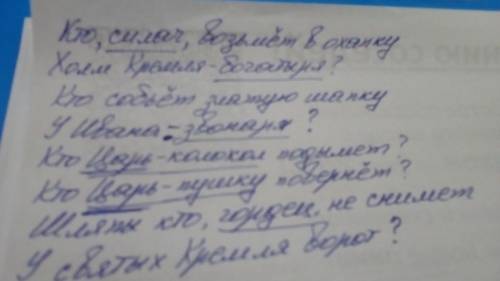 Кто, силач, возьмёт в охапку
Холм Кремля-богатыря?
Кто собьёт златую шапку
У Ивана-звонаря?
Кто Царь-колокол подымет?
Кто Царь-пушку повернёт?
Шляпы кто, гордец, не снимет
У святых Кремля ворот?